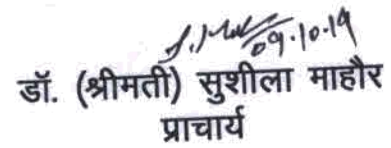 09.10.19
डॉ. (श्रीमती) सुशीला माहौर
प्राचार्य